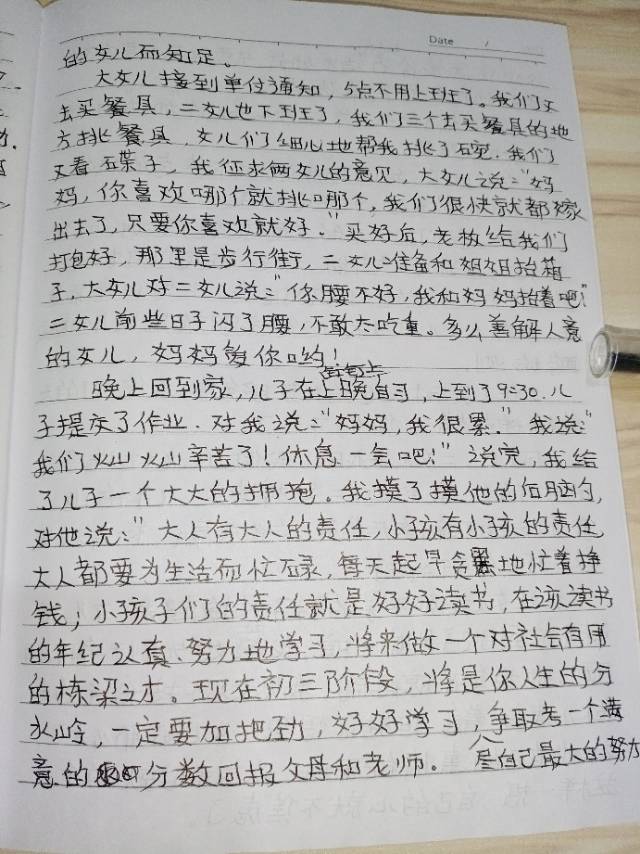 Date /
的女儿而知足。
大女儿接到单位通知，5点不用上班了。我们又
去买餐具，二女儿也下班了，我们三个去买餐具的地
方挑餐具，女儿们细心地帮我挑了碗，我们
又看碟子，我征求俩女儿的意见，大女儿说："妈
妈，你喜欢哪个就挑哪个，我们很快就都嫁
出去了，只要你喜欢就好。"买好后，老板给我们
打包好，那里是步行街，二女儿准备和姐姐抬箱
子，大女儿对二女儿说："你腰不好，我和妈妈抬着吧！"
二女儿前些日子闪了腰，不敢太吃重。多么善解人意
的女儿，妈妈爱你哟！
晚上回到家，儿子在钉钉上上晚自习，上到了9:30.儿
子提交了作业，对我说："妈妈，我很累。"我说："
我们灿灿辛苦了！休息一会吧！"说完，我给
了儿子一个大大的拥抱。我摸了摸他的后脑勺，
对他说："大人有大人的责任，小孩有小孩的责任，
大人都要为生活而忙碌，每天起早贪黑地忙着挣
钱；小孩子们的责任就是好好读书，在该读书
的年纪认真、努力地学习，将来做一个对社会有用
的栋梁之才。现在初三阶段，将是你人生的分
水岭，一定要加把劲，好好学习，争取考一个满
意的分数回报父母和老师。尽自己最大的努力